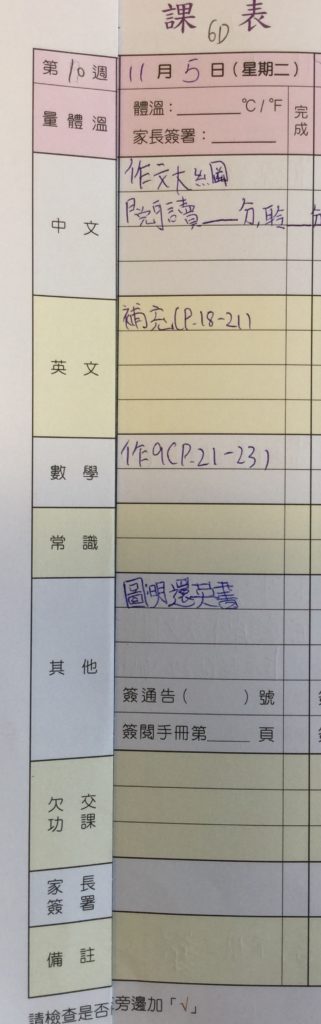 課表
6D
第10週 11月5日(星期二)
量體溫 體溫:______℃/℉ 完成
家長簽署:______
中文 作文大綱
閱讀___分,聆___分
英文 補充(P.18-21)
數學 作9(P.21-23)
常識
其他 圖:明還英書
簽通告( )號
簽閱手冊第____頁
欠交功課
家長簽署
備註
請檢查是否 旁邊加「√」